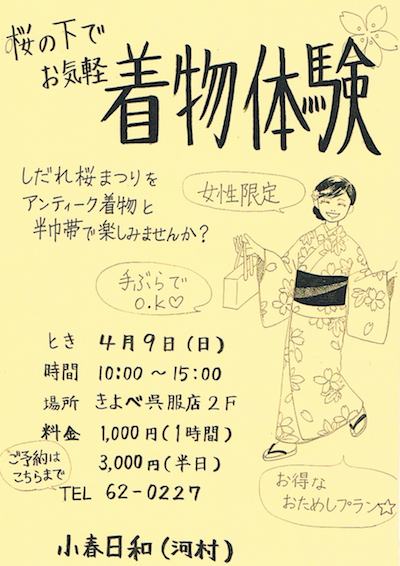 桜の下で
お気軽
着物体験
しだれ桜まつりを
アンティーク着物と
半巾帯で楽しみませんか?
女性限定
手ぶらで
O.K♡
とき 4月9日(日)
時間 10:00~15:00
場所 きよべ呉服店2F
料金 1,000円(1時間)
3,000円(半日)
ご予約は
こちらまで
TEL 62-0227
お得な
おためしプラン☆
小春日和(河村)